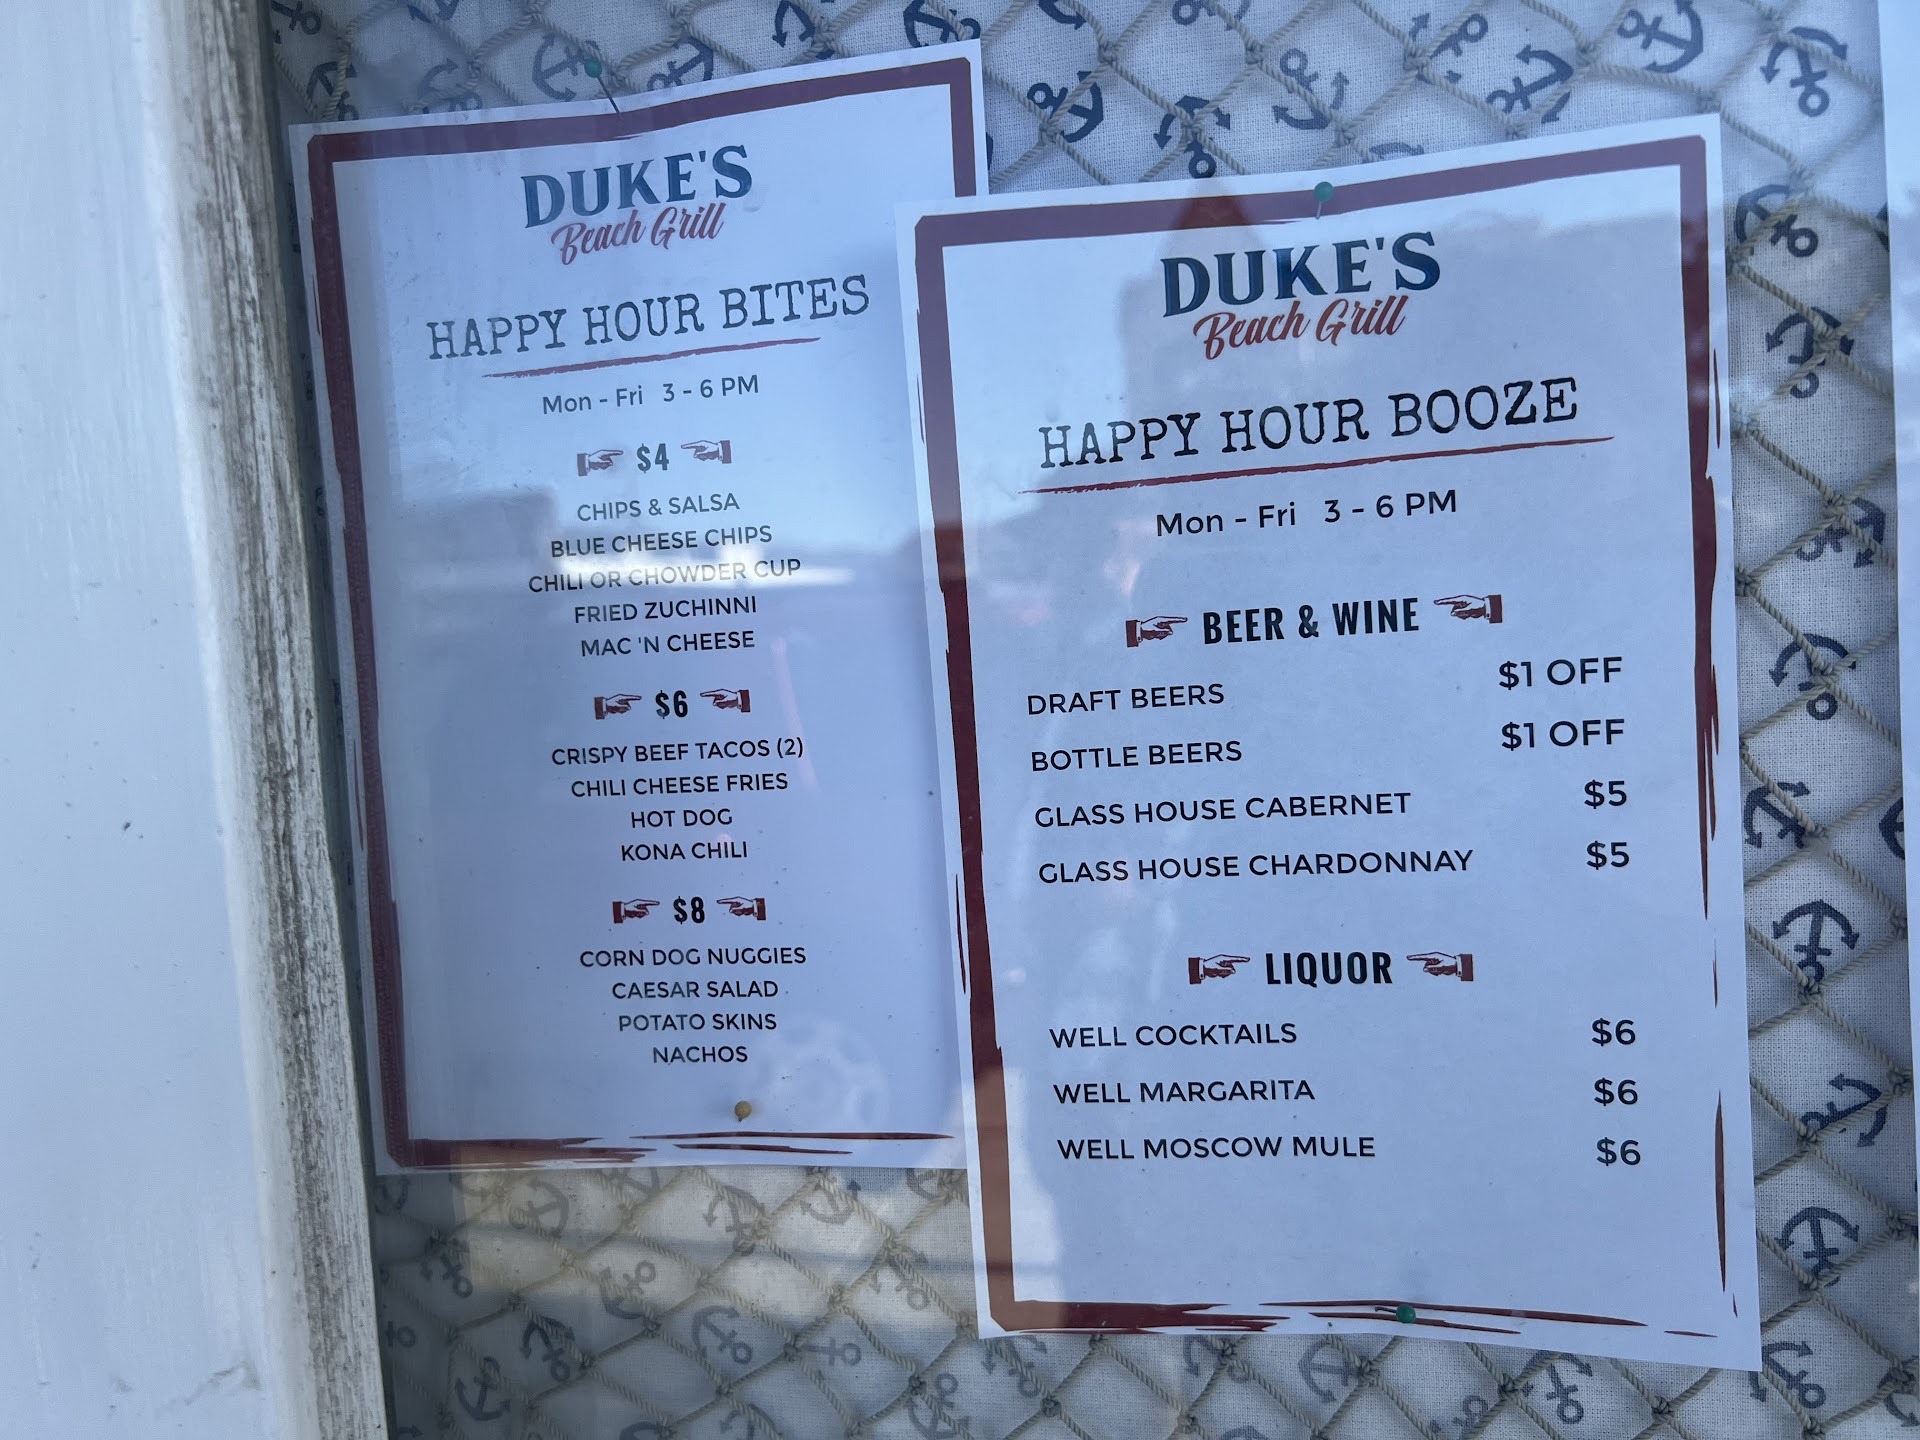 DUKE'S
Beach Grill
HAPPY HOUR BITES
Mon - Fri 3 - 6 PM
$4
CHIPS & SALSA
BLUE CHEESE CHIPS
CHILI OR CHOWDER CUP
FRIED ZUCHINNI
MAC 'N CHEESE
$6
CRISPY BEEF TACOS (2)
CHILI CHEESE FRIES
HOT DOG
KONA CHILI
$8
CORN DOG NUGGIES
CAESAR SALAD
POTATO SKINS
NACHOS
DUKE'S
Beach Grill
HAPPY HOUR BOOZE
Mon - Fri 3 - 6 PM
BEER & WINE
DRAFT BEERS $1 OFF
BOTTLE BEERS $1 OFF
GLASS HOUSE CABERNET $5
GLASS HOUSE CHARDONNAY $5
LIQUOR
WELL COCKTAILS $6
WELL MARGARITA $6
WELL MOSCOW MULE $6